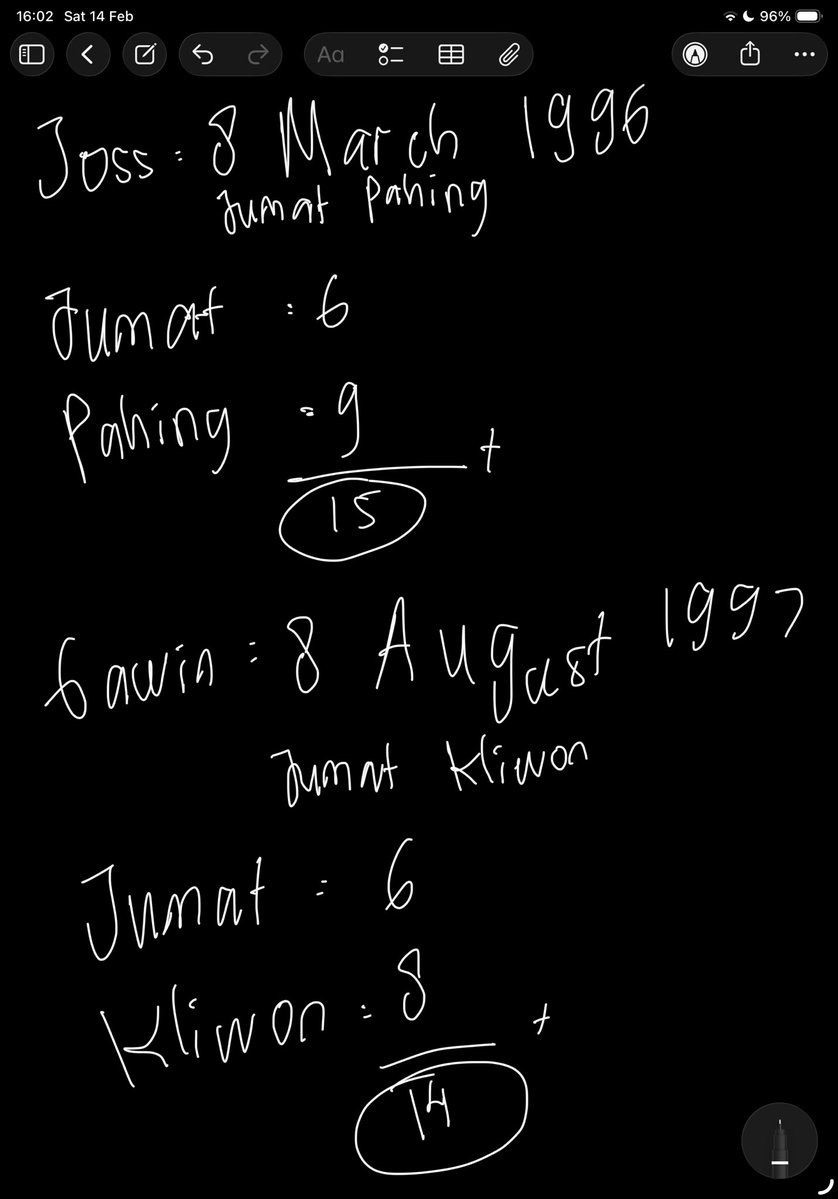 16:02 Sat 14 Feb 96%
Aa
Joss : 8 March 1996
Jumat Pahing
Jumat : 6
Pahing = 9
+
15
Gawin = 8 August 1997
Jumat Kliwon
Jumat = 6
Kliwon = 8
+
14